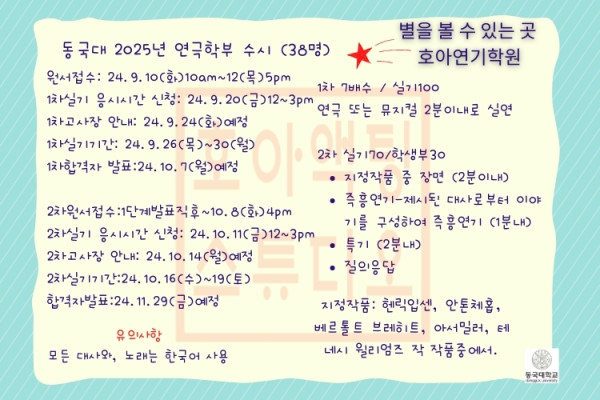 동국대 2025년 연극학부 수시 (38명)
원서접수: 24.9.10(화)10am~12(목)5pm
1차실기 응시시간 신청: 24.9.20(금)12~3pm
1차고사장 안내: 24.9.24(화)예정
1차실기기간: 24.9.26(목)~30(월)
1차합격자 발표:24.10.7(월)예정
2차원서접수:1단계발표직후~10.8(화)4pm
2차실기 응시시간 신청: 24.10.11(금)12~3pm
2차고사장 안내: 24.10.14(월)예정
2차실기기간:24.10.16(수)~19(토)
합격자발표:24.11.29(금)예정
유의사항
모든 대사와, 노래는 한국어 사용
별을 볼 수 있는 곳
호아연기학원
1차 7배수 / 실기100
연극 또는 뮤지컬 2분이내로 실연
2차 실기70/학생부30
• 지정작품 중 장면 (2분이내)
• 즉흥연기-제시된 대사로부터 이야
기를 구성하여 즉흥연기 (1분내)
• 특기 (2분내)
• 질의응답
지정작품: 헨릭입센, 안톤체홉,
베르톨트 브레히트, 아서밀러, 테
네시 윌리엄즈 작 작품중에서.
호아액팅
스튜디오
동국대학교